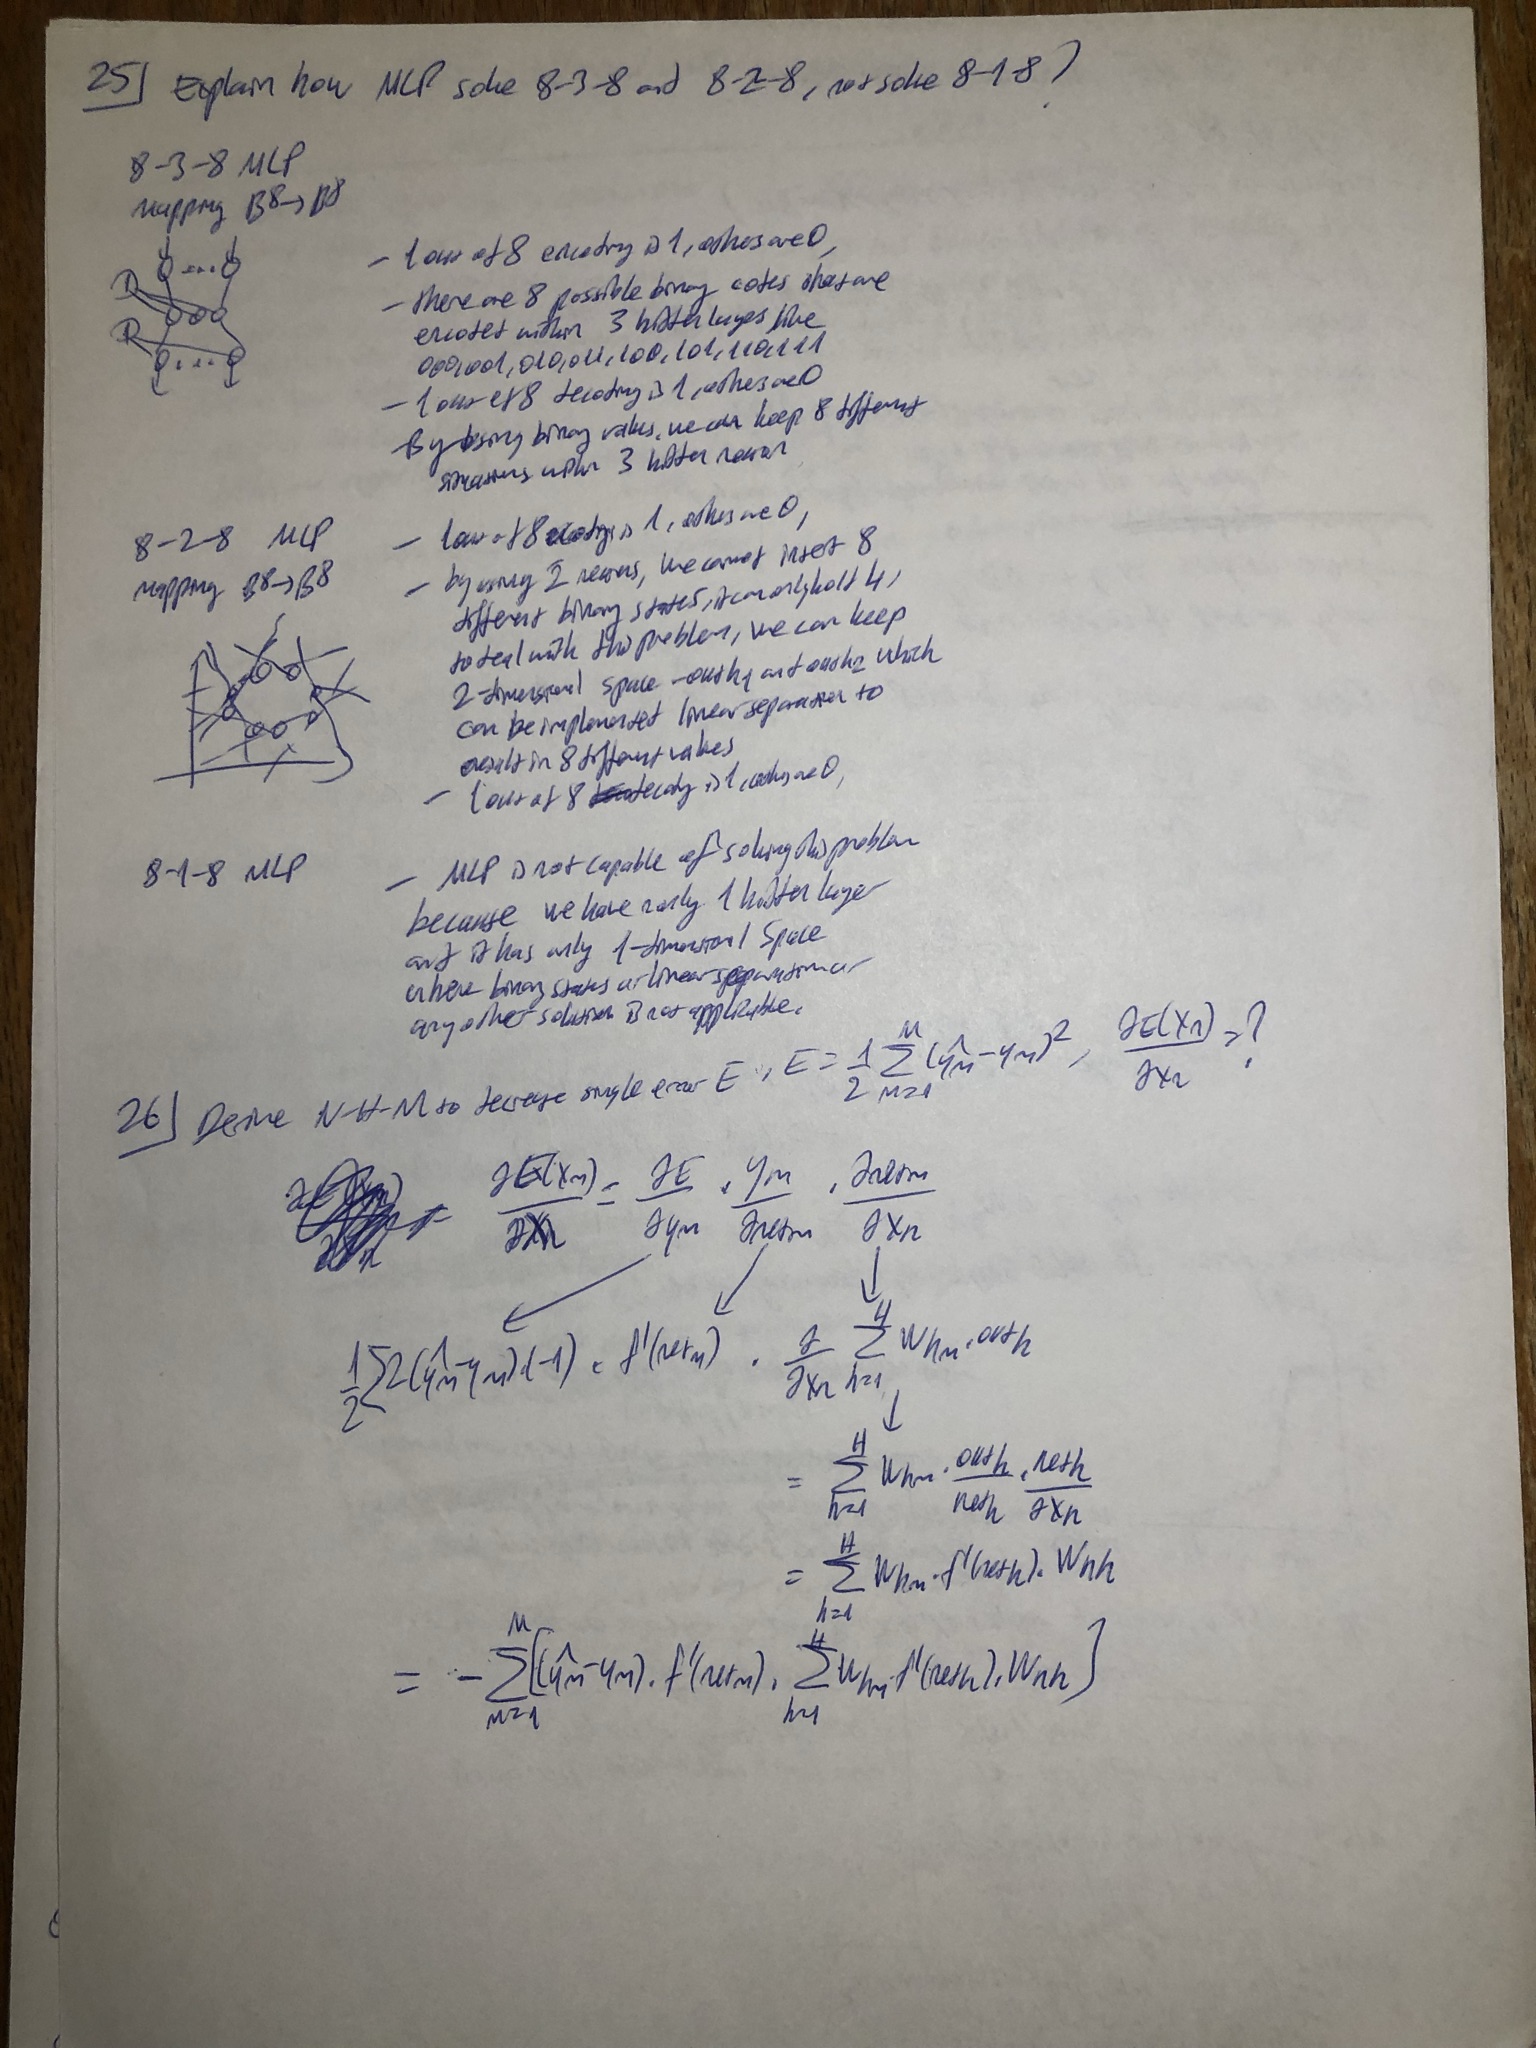 25) Explain how MLP solve 8-3-8 and 8-2-8, not solve 8-1-8?
8-3-8 MLP
Mapping B8→B8
- 1 out of 8 encoding is 1, others are 0,
- there are 8 possible binary codes that are
encoded within 3 hidden layers like
000,001,010,011,100,101,110,111
- 1 out of 8 decoding is 1, others are 0
By using binary values, we can keep 8 different
situations within 3 hidden neuron
8-2-8 MLP
mapping B8→B8
- 1 out of 8 encoding is 1, others are 0,
- by using 2 neurons, we cannot insert 8
different binary states, it can only hold 4,
to deal with this problem, we can keep
2-dimensional space - outh1 and outh2 which
can be implemented linear separation to
result in 8 different values
- 1 out of 8 decody is 1, others are 0,
8-1-8 MLP
- MLP is not capable of solving this problem
because we have only 1 hidden layer
and it has only 1-dimensional space
where binary states or linear separation or
any other solution is not applicable.
26) Derive N-H-M to decrease single error E, E = 1/2 ∑ M m=1 (ŷm - ym)², ∂E(xn)/∂xn = ?
∂E(xn)/∂xn = ∂E/∂ym · ym/∂netm · ∂netm/∂xn
1/2 ∑ 2(ŷm - ym)·(-1) · f'(netm) · ∂/∂xn ∑ H h=1 whm · outh
= ∑ H h=1 whm · outh/neth · neth/∂xn
= ∑ H h=1 whm · f'(neth) · wnh
= - ∑ M m=1 [(ŷm - ym) · f'(netm) · ∑ H h=1 whm · f'(neth) · wnh]